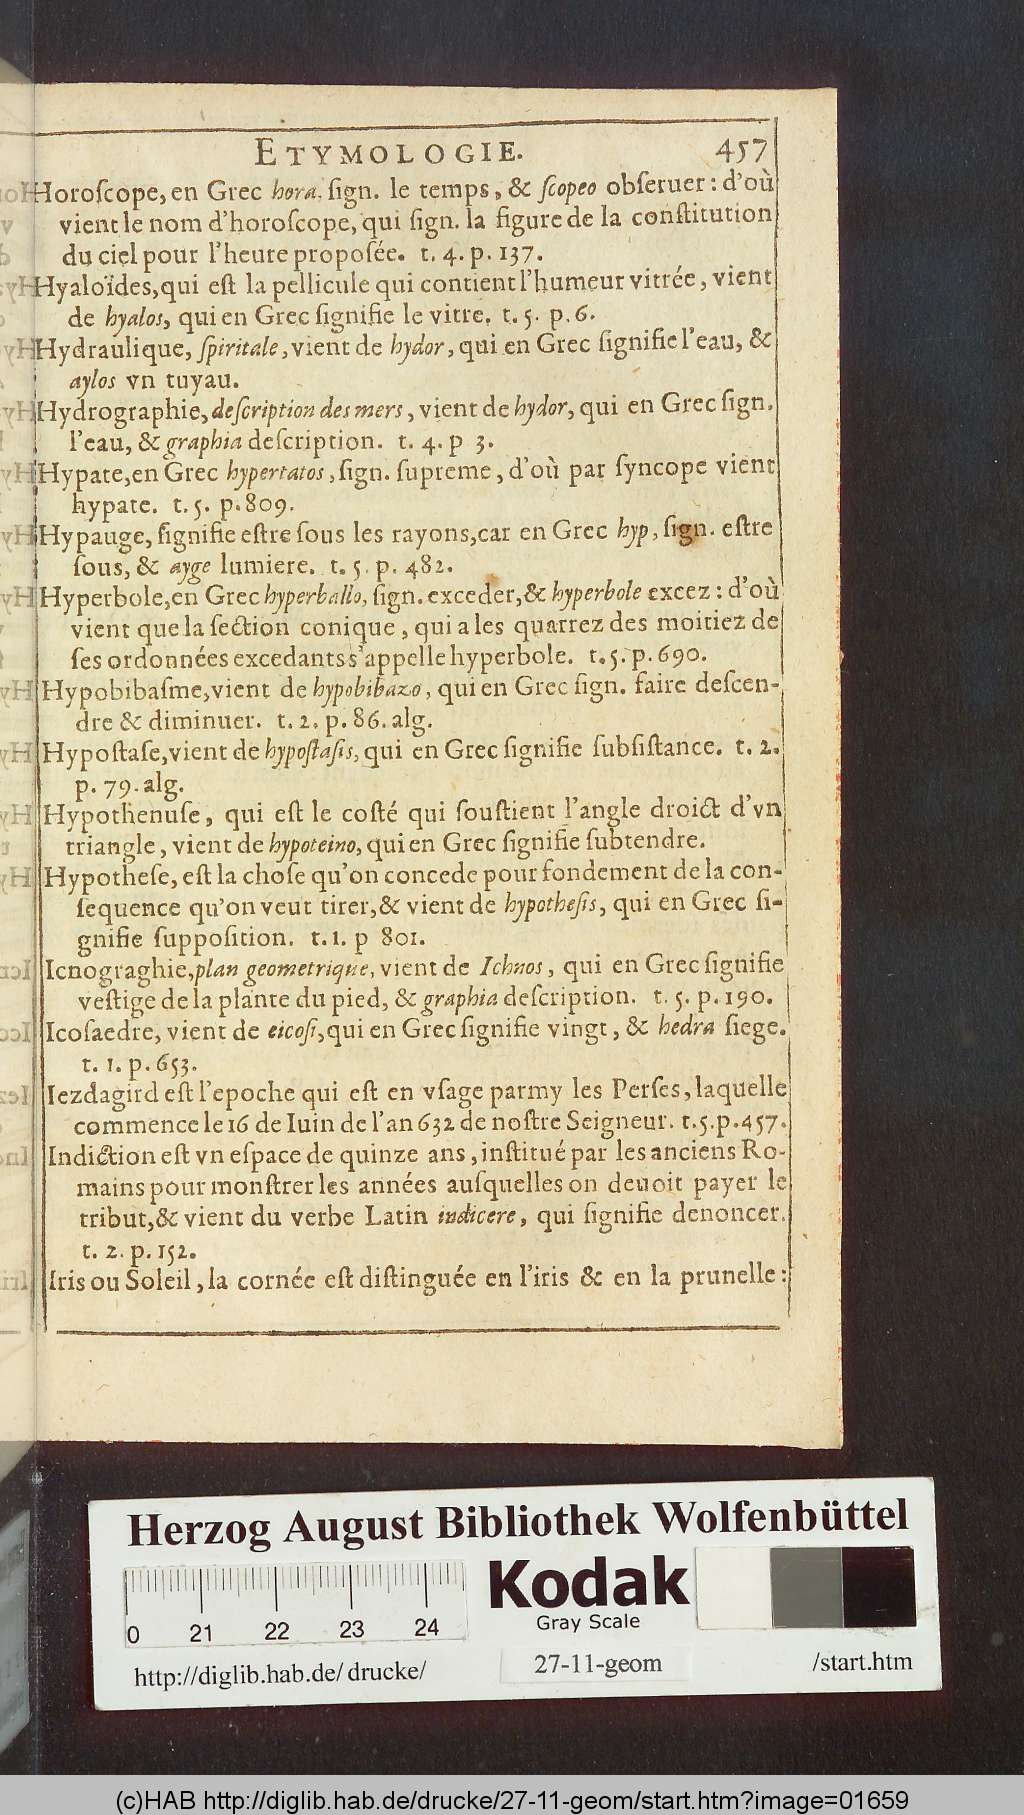 ETYMOLOGIE. 457
Horoſcope, en Grec hora, ſign. le temps, & ſcopeo obſeruer: d'où
vient le nom d'horoſcope, qui ſign. la figure de la conſtitution
du ciel pour l'heure propoſée. t. 4. p. 137.
Hyaloïdes, qui eſt la pellicule qui contient l'humeur vitrée, vient
de hyalos, qui en Grec ſignifie le vitre. t. 5. p. 6.
Hydraulique, ſpiritale, vient de hydor, qui en Grec ſignifie l'eau, &
aylos vn tuyau.
Hydrographie, deſcription des mers, vient de hydor, qui en Grec ſign.
l'eau, & graphia deſcription. t. 4. p 3.
Hypate, en Grec hypertatos, ſign. ſupreme, d'où par ſyncope vient
hypate. t. 5. p. 809.
Hypauge, ſignifie eſtre ſous les rayons, car en Grec hyp, ſign. eſtre
ſous, & ayge lumiere. t. 5. p. 482.
Hyperbole, en Grec hyperballo, ſign. exceder, & hyperbole excez: d'où
vient que la ſection conique, qui a les quarrez des moitiez de
ſes ordonnées excedants s'appelle hyperbole. t. 5. p. 690.
Hypobibaſme, vient de hypobibazo, qui en Grec ſign. faire deſcen-
dre & diminuer. t. 2. p. 86. alg.
Hypoſtaſe, vient de hypoſtaſis, qui en Grec ſignifie ſubſiſtance. t. 2.
p. 79. alg.
Hypothenuſe, qui eſt le coſté qui ſouſtient l'angle droict d'vn
triangle, vient de hypoteino, qui en Grec ſignifie ſubtendre.
Hypotheſe, eſt la choſe qu'on concede pour fondement de la con-
ſequence qu'on veut tirer, & vient de hypotheſis, qui en Grec ſi-
gnifie ſuppoſition. t. 1. p 801.
Icnograghie, plan geometrique, vient de Ichnos, qui en Grec ſignifie
veſtige de la plante du pied, & graphia deſcription. t. 5. p. 190.
Icoſaedre, vient de eicoſi, qui en Grec ſignifie vingt, & hedra ſiege.
t. 1. p. 653.
Iezdagird eſt l'epoche qui eſt en vſage parmy les Perſes, laquelle
commence le 16 de Iuin de l'an 632 de noſtre Seigneur. t. 5. p. 457.
Indiction eſt vn eſpace de quinze ans, inſtitué par les anciens Ro-
mains pour monſtrer les années auſquelles on deuoit payer le
tribut, & vient du verbe Latin indicere, qui ſignifie denoncer.
t. 2. p. 152.
Iris ou Soleil, la cornée eſt diſtinguée en l'iris & en la prunelle:
Herzog August Bibliothek Wolfenbüttel
Kodak
Gray Scale
0 21 22 23 24
http://diglib.hab.de/ drucke/ 27-11-geom /start.htm
(c)HAB http://diglib.hab.de/drucke/27-11-geom/start.htm?image=01659